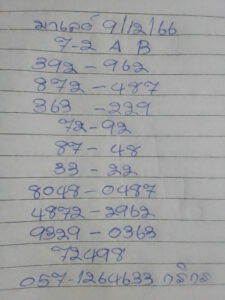 มาเลย์ 9/12/66
7-2 A B
392-962
872-487
363-229
72-92
87-48
33-22
8048-0487
4872-2962
9329-0363
72498
057-1264633